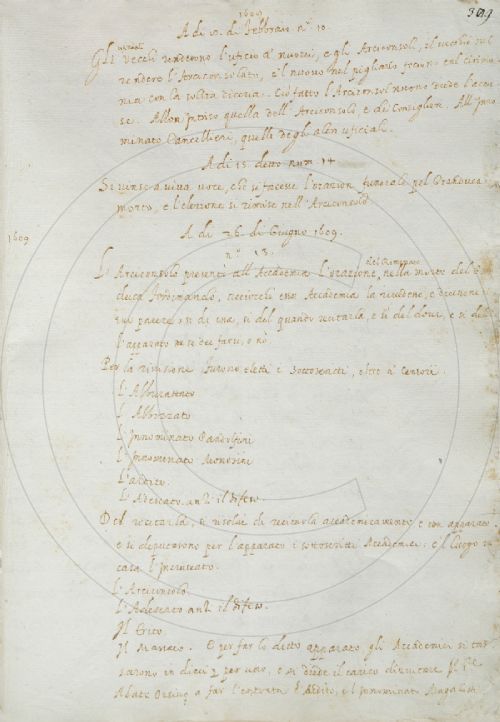 1609
319
A di 12. di Febbraio nº 10.
Gli vecchi renderono l'uficio a' nuovi, e gli Arciconsoli, el vecchio nel
rendere l'Arciconsolato, e 'l nuovo nel pigliarlo fecero cul cirimo
nia con la solita diceria. Ciò fatto l'Arciconsolo nuovo diede l'acces
se.
quella dell' Arciconsolo, e de Consiglieri. All' Inno
minato Cancellieri, quelle degli altri uficiali.
A di 15. detto num 14
Si vinse a viva voce, che si facesse l'orazion funerale pel Granduca
morto, e l'elezione si rimise nell' Arciconsolo
A di 26. di Giugno 1609.
1609
nº 13.
L'Arciconsolo presentò all' Accademia l'orazione, nella morte del G.
duca Ferdinando, acciocchè essa Accademia la rivedesse, e dicessene
suo parere, sì di essa, sì del quando recitarla, e sì del dove, e sì del
l'apparato ne si dee farsi, o no
Per la rivisione furono eletti i sottoscritti, oltre a' Censori.
L'Abburattato
L'Abbozzato
L'Innominato Pandolfini
L'Innominato
L'Ardito.
L'Adescato anzi il difeso.
Del recitarla, si risolvé di recitarla accademicamente e con apparato
e si deputorono per l'apparato i sottoscritti Accademici: e 'l luogo in
casa l'
L'Arciconsolo
L'Adescato anzi il difeso.
Il Trito
Il Macero. E per far lo detto apparato gli Accademici si tas
sarono in dieci per uno, e si diede il carico di
Abate Orsino a far l'entrata l'Ardito, e l'Innominato